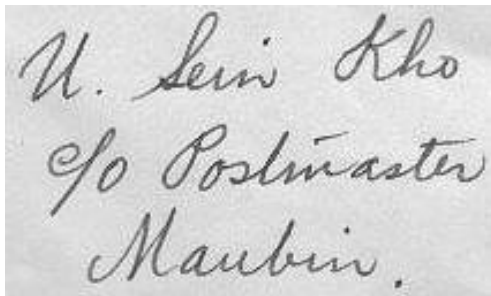 U. Sein Kho
c/o Postmaster
Maubin.